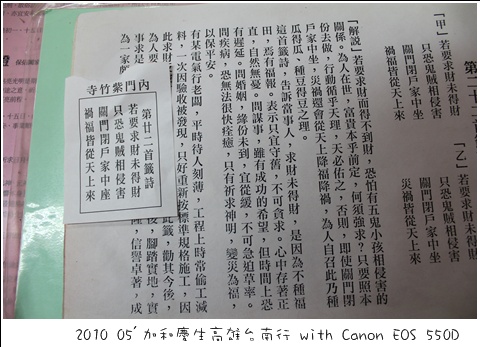 「甲」若要求財未得財
只恐鬼賊相侵害
關門閉戶家中坐
禍福皆從天上來
「乙」若要求財未得財
只恐鬼賊相侵害
關門閉戶家中坐
災禍皆從天上來
「解說」若要求財而得不到財，恐怕有五鬼小孩相侵害的
關係。為人在世，富貴本乎前定，何須強求？只要照本
份去做，行動循乎天理，天必佑之，否則，即使關門閉
戶家中坐，災禍還會從天上降福降禍，為人自召此乃種
瓜得瓜、種豆得豆之理。
這首籤詩，告訴當事人，求財未得財，是因為不種福
田，焉有福報。表示只宜守舊，不可貪求。心中存著正
直，自然無憂。問謀事，雖有成功的希望，但時間上恐
有遲延。問婚姻，緣份未到，宜從緩，不可急迫草率。
問疾病，恐無法很快痊癒，只有祈求神明，變災為福，
以保平安。
有某電氣行老闆，平時待人刻薄，工程上時常偷工減
料，一次因驗收被發現，只好重新按標準規格施工，因
此求財
此籤，勸其今後，
為人要
後，腳踏實地，實
事求是
種，信譽卓著，成
為一家
內門紫竹寺
第廿二首籤詩
若要求財未得財
只恐鬼賊相侵害
關門閉戶家中座
禍福皆從天上來
2010 05' 加和慶生高雄台南行 with Canon EOS 550D